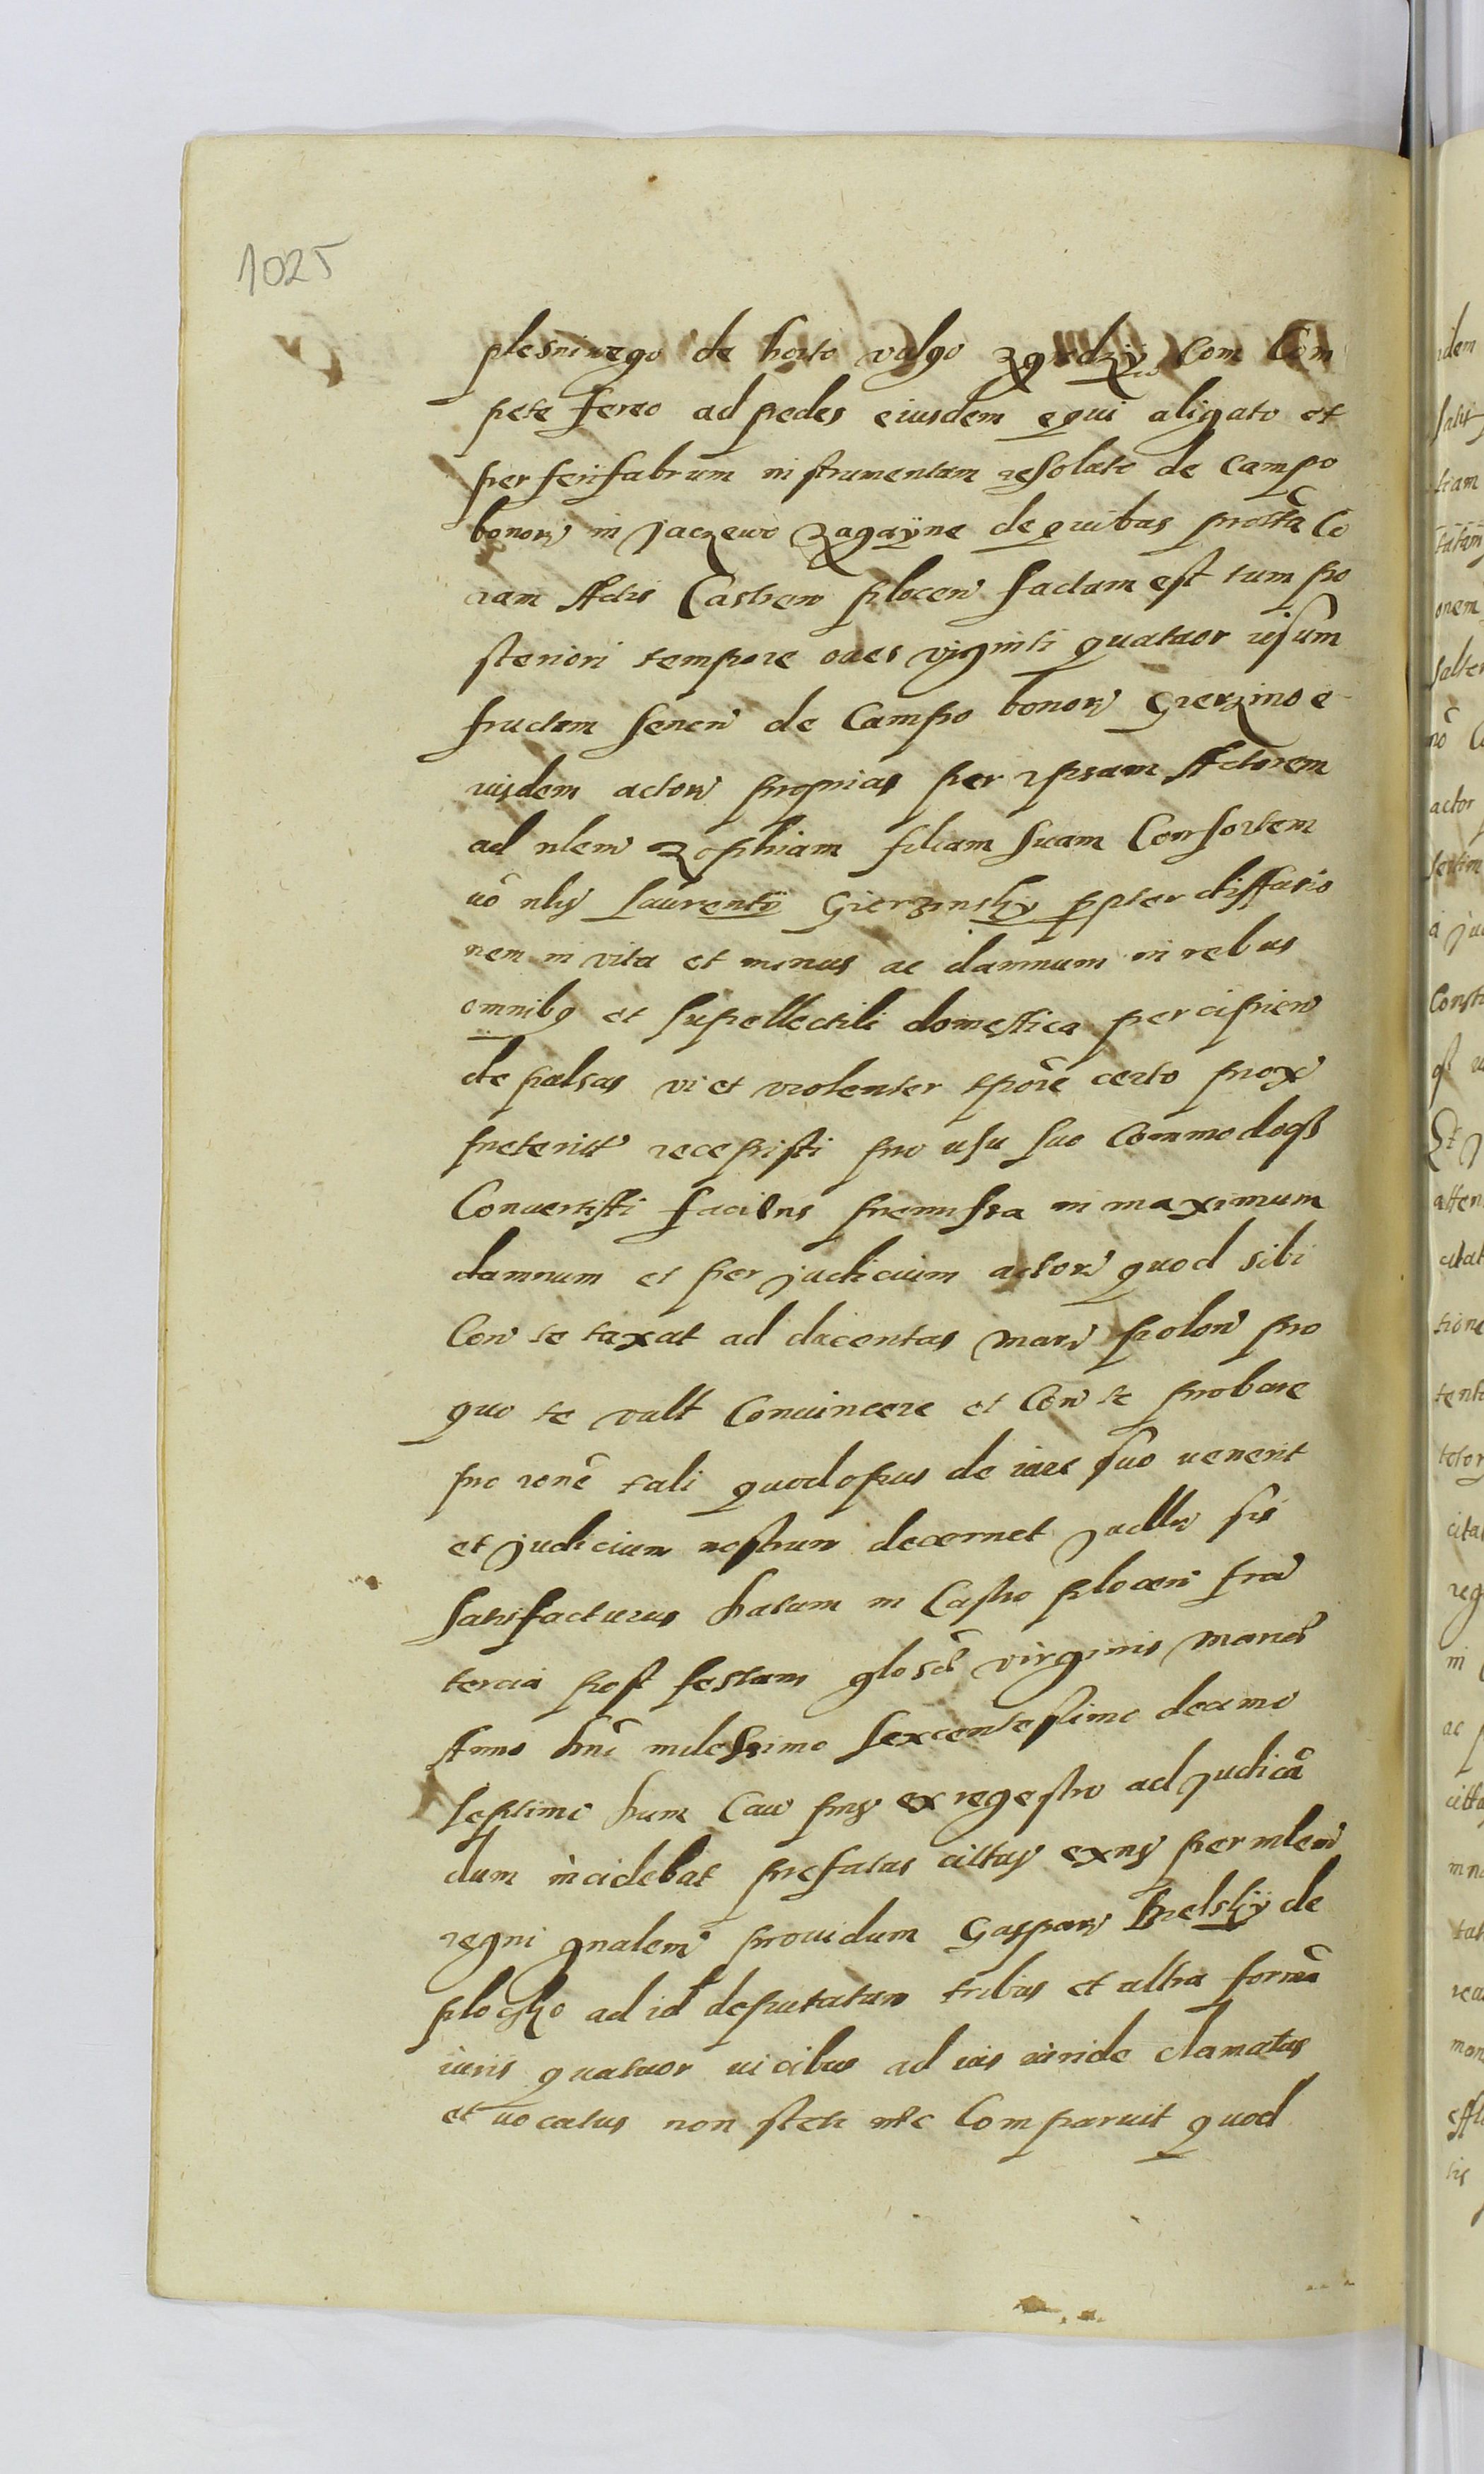 1025
plesniwego de horto vulgo zgrodzÿ Com Com
pete ferreo ad pedes eiusdem equi aligato et
per ferrifabrum instrumentum resoluto de campo
bonorŭ in Jaczewo Zagaÿne de quibus prottã Co
ram Actis Castren plocen factum est tum po
steriori tempore oues viginti quatuor usum
fructum feren de Campo bonorŭ Gierzino e
iusdem actorŭ proprias per ipsam Actorem
ad nlem Zophiam filiam suam Consortem
uô nlis Laurentÿ Gierzinskÿ ppter dissasio
nem in vita et minus ac damnum in rebus
omnibq et supellectili domestica percipien
depulsas vi et violenter tpôre certo prox
preterit recepisti pro usu suo Commodoqꝫ
Convertisti faciens premissa in maximum
damnum et perjudicium actorŭ quod sibi
Con te taxat ad ducentas marŭ polon pro
quo te vult Convincere et Con te probare
pro ronê tali quod opus de iure suo uenerit
et judicium nostrum decernet judllr sis
satisfacturus Datum in Castro plocen fra
tercia post festum glosê virginis Mariæ
Anno Dni millessimo sexcentessimo decimo
septimo hunc Cau prns ex regestro ad judicã
dum incidebat prefatus cittus exns per mlem
regni gnalem providum Gaspar Bielskÿ de
plocko ad id deputatum tribus et ultra formã
iuris quatuor uicibus ad ius iuride clamatus
et uocatus non stetit nec Comparuit quod